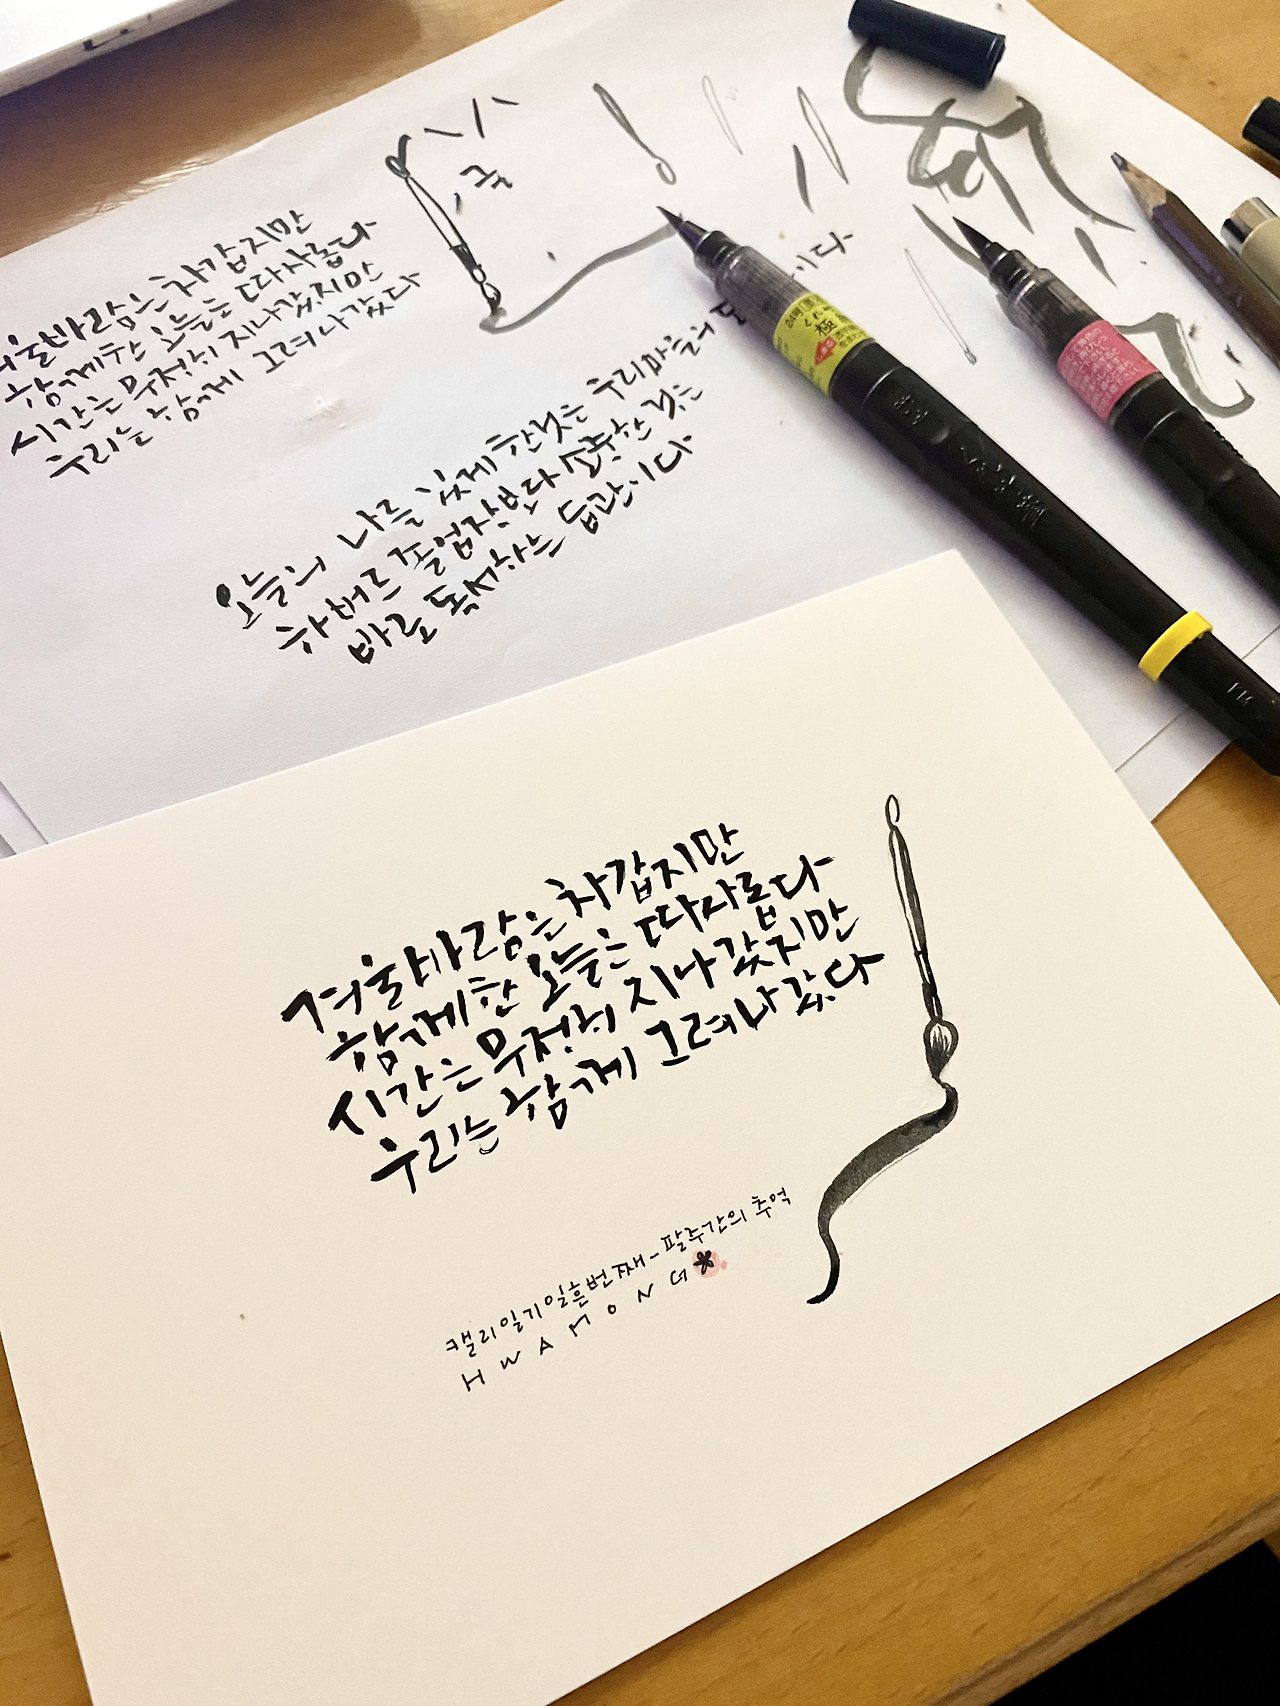 겨울바람은 차갑지만
함께한 오늘은 따사롭다
시간은 무정히 지나갔지만
우리는 함께 그려나갔다
오늘의 나를 있게 한것은 우리마을의 도 이다
하버드 졸업장보다 소중한 것은
바로 독서하는 습관이다
극
겨울바람은 차갑지만
함께한 오늘은 따사롭다
시간은 무정히 지나갔지만
우리는 함께 그려나갔다
캘리일기일흔번째-팔주간의 추억
HWAMONG